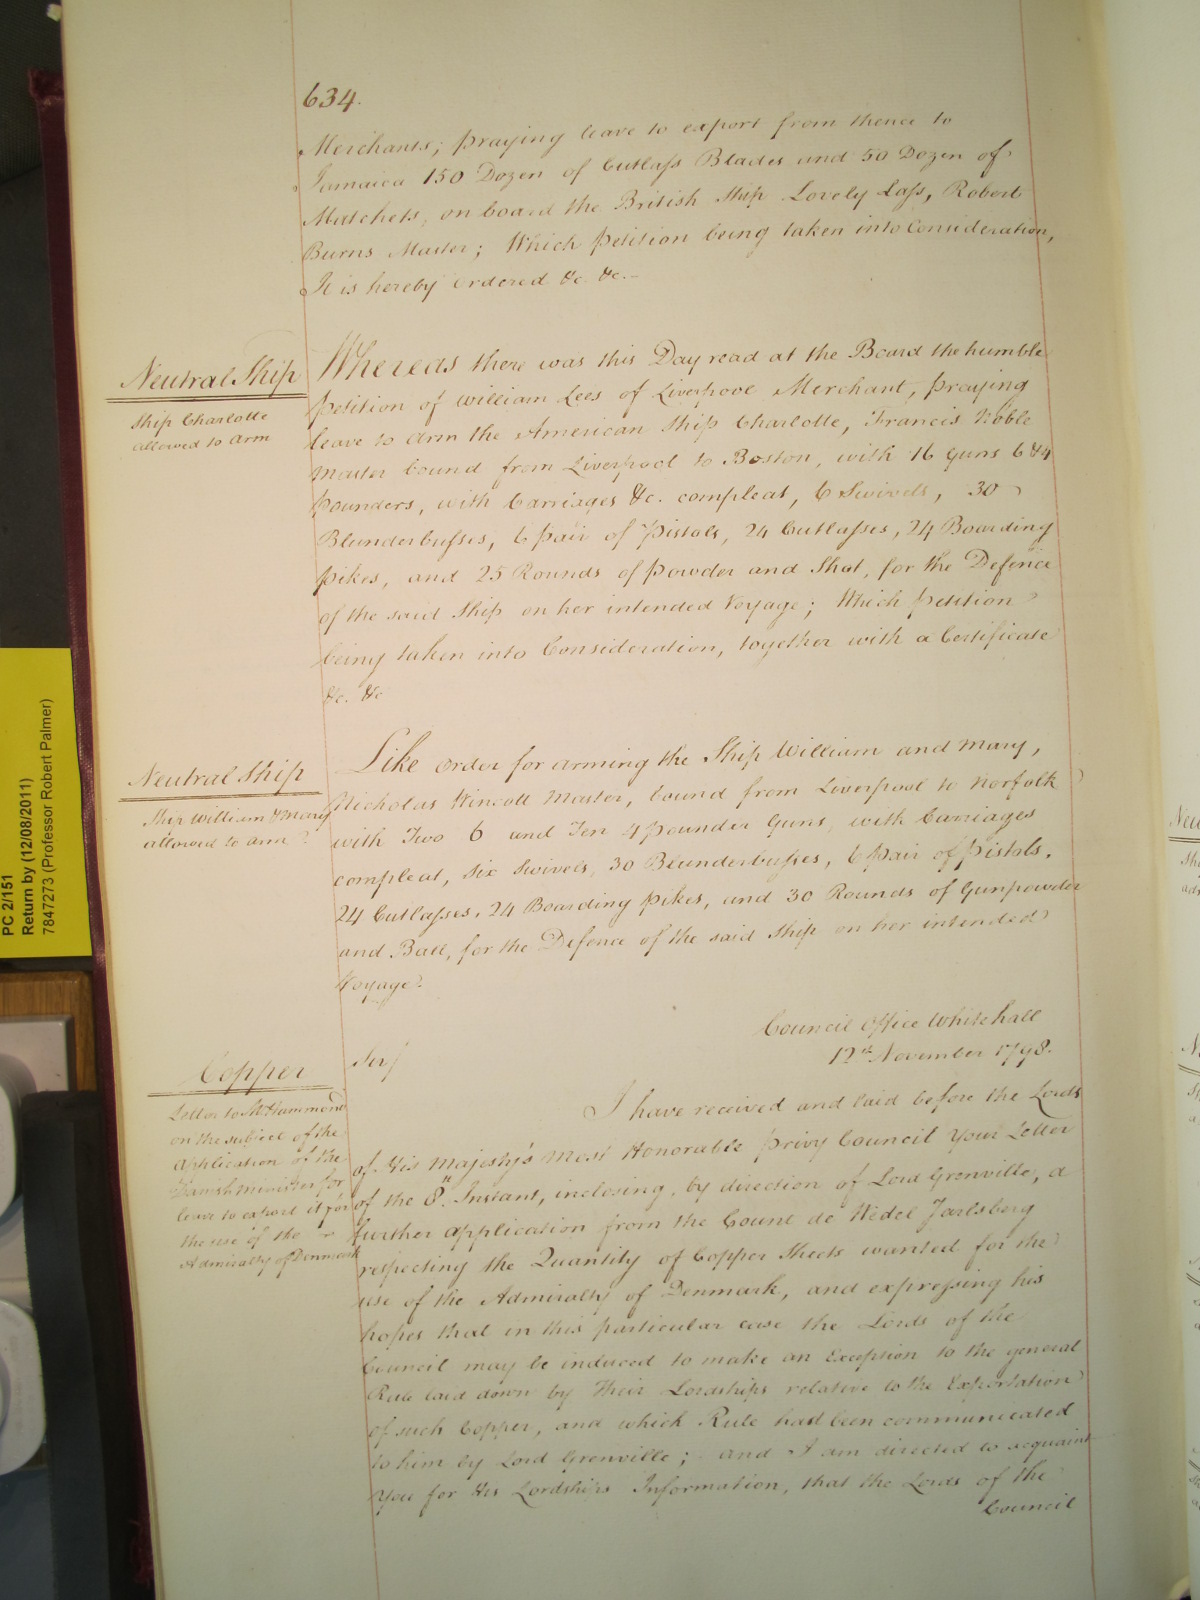 634.
Merchants; praying leave to export from thence to
Jamaica 150 Dozen of Cutlass Blades and 50 Dozen of
Matchets, on board the British Ship Lovely Lass, Robert
Burns Master; Which Petition being taken into Consideration,
It is hereby ordered &c. &c.—
Neutral Ship
Ship Charlotte
allowed to arm
Whereas there was this Day read at the Board the humble
petition of William Lees of Liverpool Merchant, praying
leave to arm the American Ship Charlotte, Francis Noble
Master bound from Liverpool to Boston, with 16 Guns 6 & 4
pounders, with Carriages &c. compleat, 6 Swivels, 30
Blunderbusses, 6 pair of Pistols, 24 Cutlasses, 24 Boarding
pikes, and 25 Rounds of powder and Shot, for the Defence
of the said Ship on her intended Voyage; Which petition
being taken into Consideration, together with a Certificate
&c. &c
Neutral Ship
Ship William & Mary
allowed to arm
Like order for arming the Ship William and Mary,
Nicholas Wincott Master, bound from Liverpool to Norfolk
with Two 6 and Ten 4 pounder Guns, with Carriages
compleat, six Swivels, 30 Blunderbusses, 6 pair of Pistols,
24 Cutlasses, 24 Boarding pikes, and 30 Rounds of Gunpowder
and Ball, for the Defence of the said Ship on her intended
Voyage.
Council Office Whitehall
12th November 1798.
Copper
Letter to Mr Hammond
on the subject of the
application of the
Danish Minister for
leave to export it for
the use of the
Admiralty of Denmark
Sir/
I have received and laid before the Lords
of His Majesty's most Honorable Privy Council Your Letter
of the 8th Instant, inclosing, by direction of Lord Grenville, a
further application from the Count de Wedel Jarlsberg
respecting the Quantity of Copper Sheets wanted for the
use of the Admiralty of Denmark, and expressing his
hopes that in this particular case the Lords of the
Council may be induced to make an Exception to the general
Rule laid down by Their Lordships relative to the Exportation
of such Copper, and which Rule had been communicated
to him by Lord Grenville; and I am directed to acquaint
You for His Lordship's Information, that the Lords of the
Council
PC 2/151
Return by (12/08/2011)
7847273 (Professor Robert Palmer)